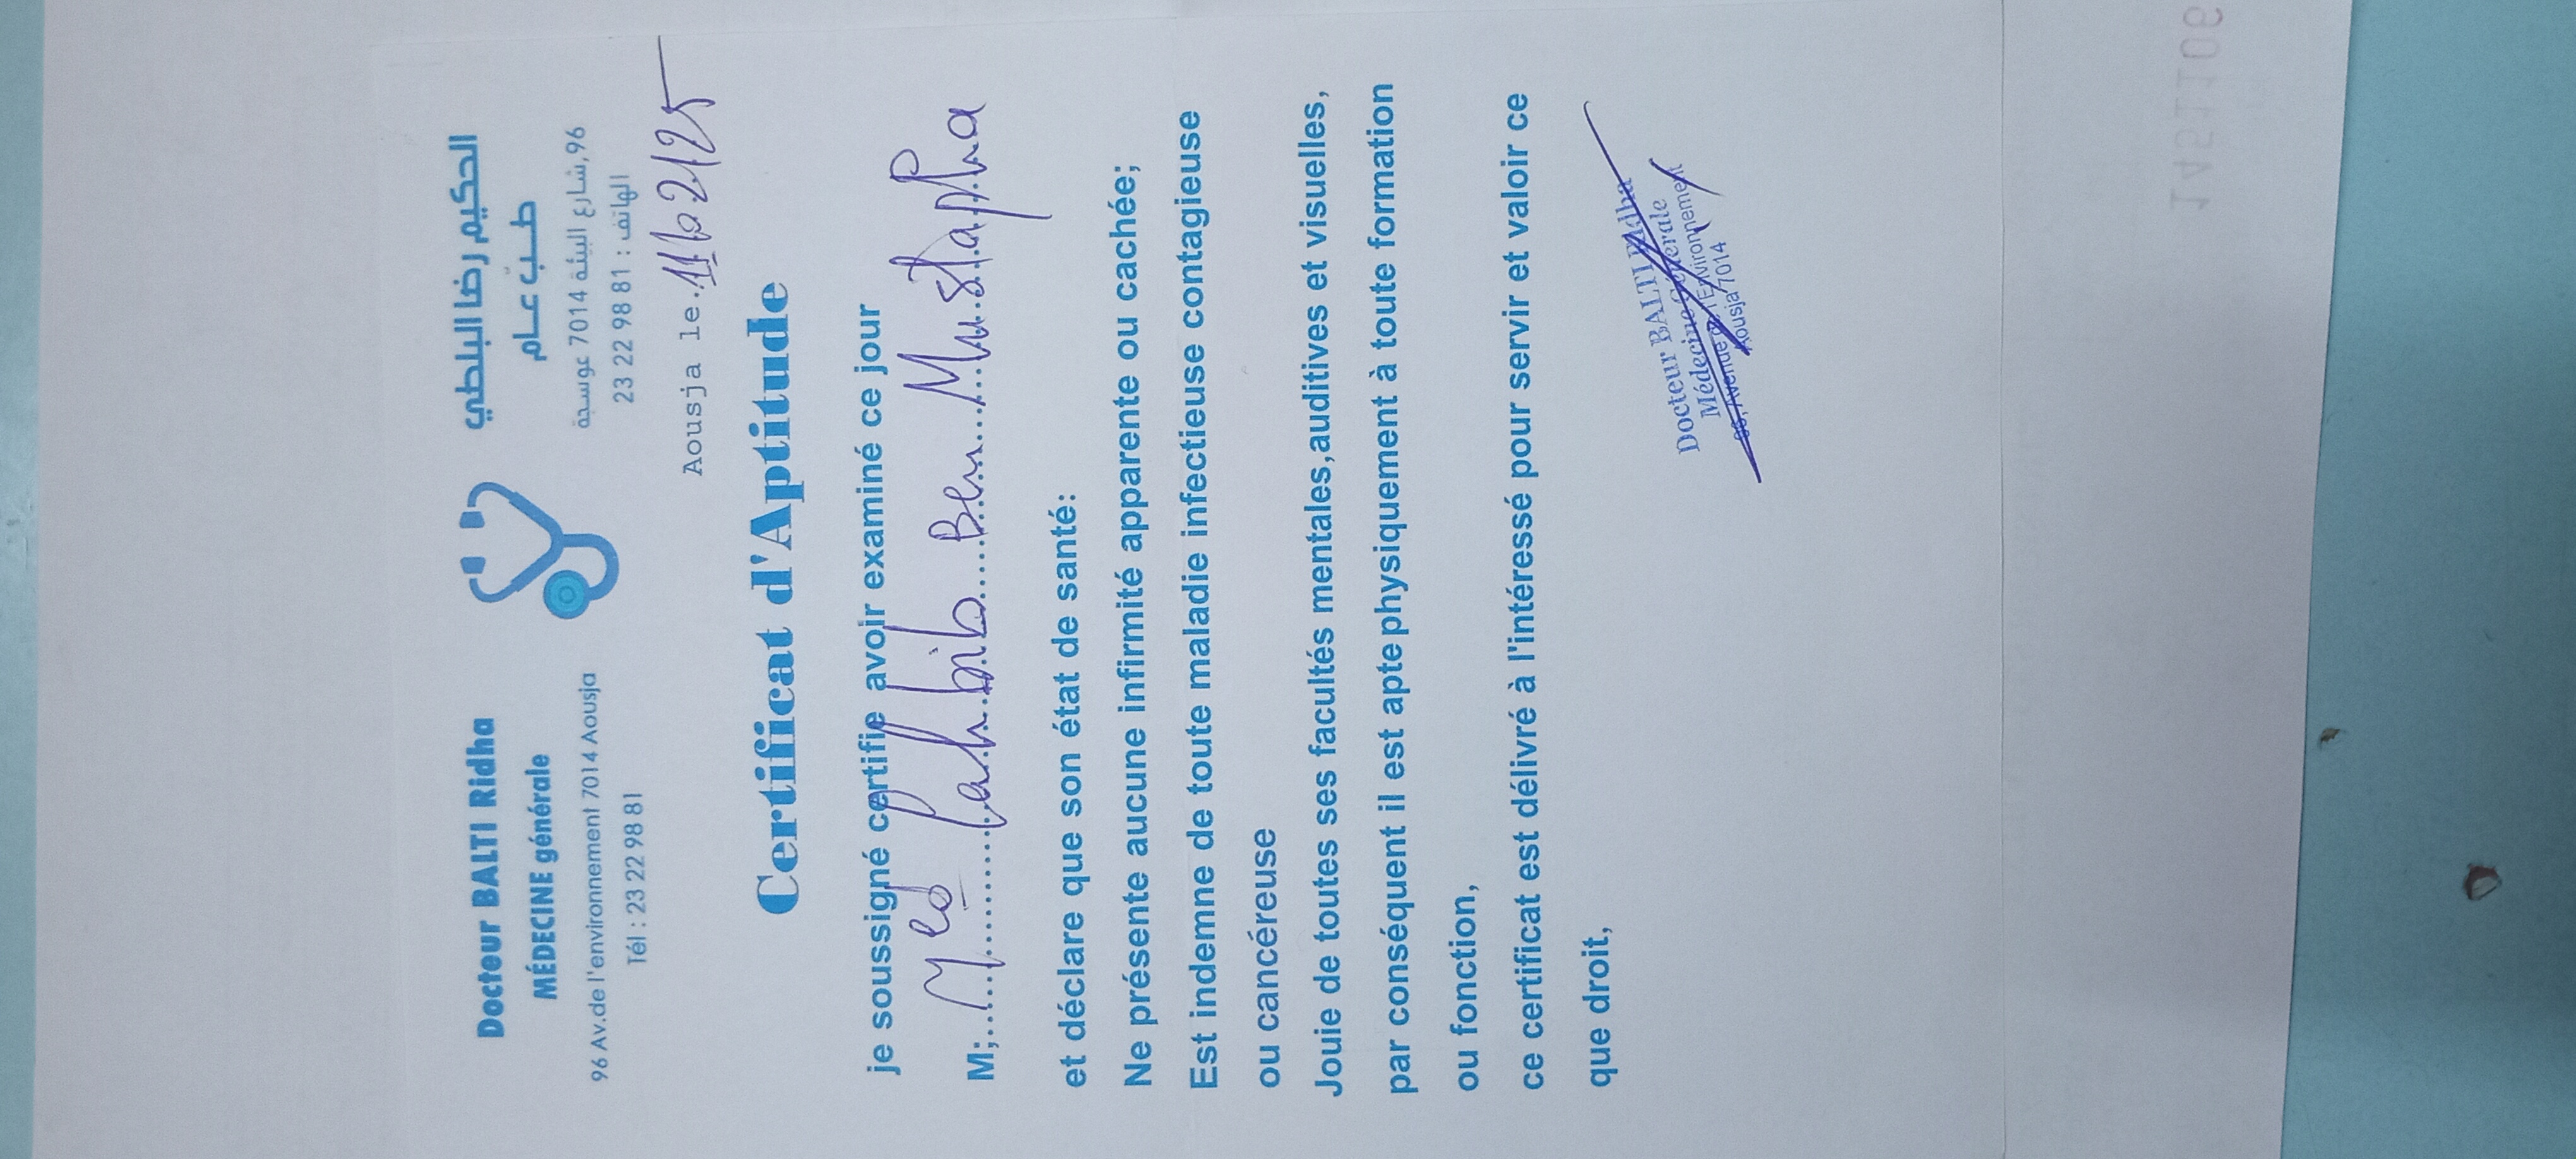 Docteur BALTI Ridha
MÉDECINE générale
96 Av.de l'environnement 7014 Aousja
Tél : 23 22 98 81
الحكيم رضا البلطي
طب عام
96,شارع البيئة 7014 عوسجة
الهاتف : 81 98 22 23
Aousja le.11/02/25
Certificat d'Aptitude
je soussigné certifie avoir examiné ce jour
M;..Med Lahbib Ben Mustapha
et déclare que son état de santé:
Ne présente aucune infirmité apparente ou cachée;
Est indemne de toute maladie infectieuse contagieuse
ou cancéreuse
Jouie de toutes ses facultés mentales,auditives et visuelles,
par conséquent il est apte physiquement à toute formation
ou fonction,
ce certificat est délivré à l'intéressé pour servir et valoir ce
que droit,
Docteur BALTI Ridha
Médecine Générale
96, Avenue de l'Environnement
Aousja 7014